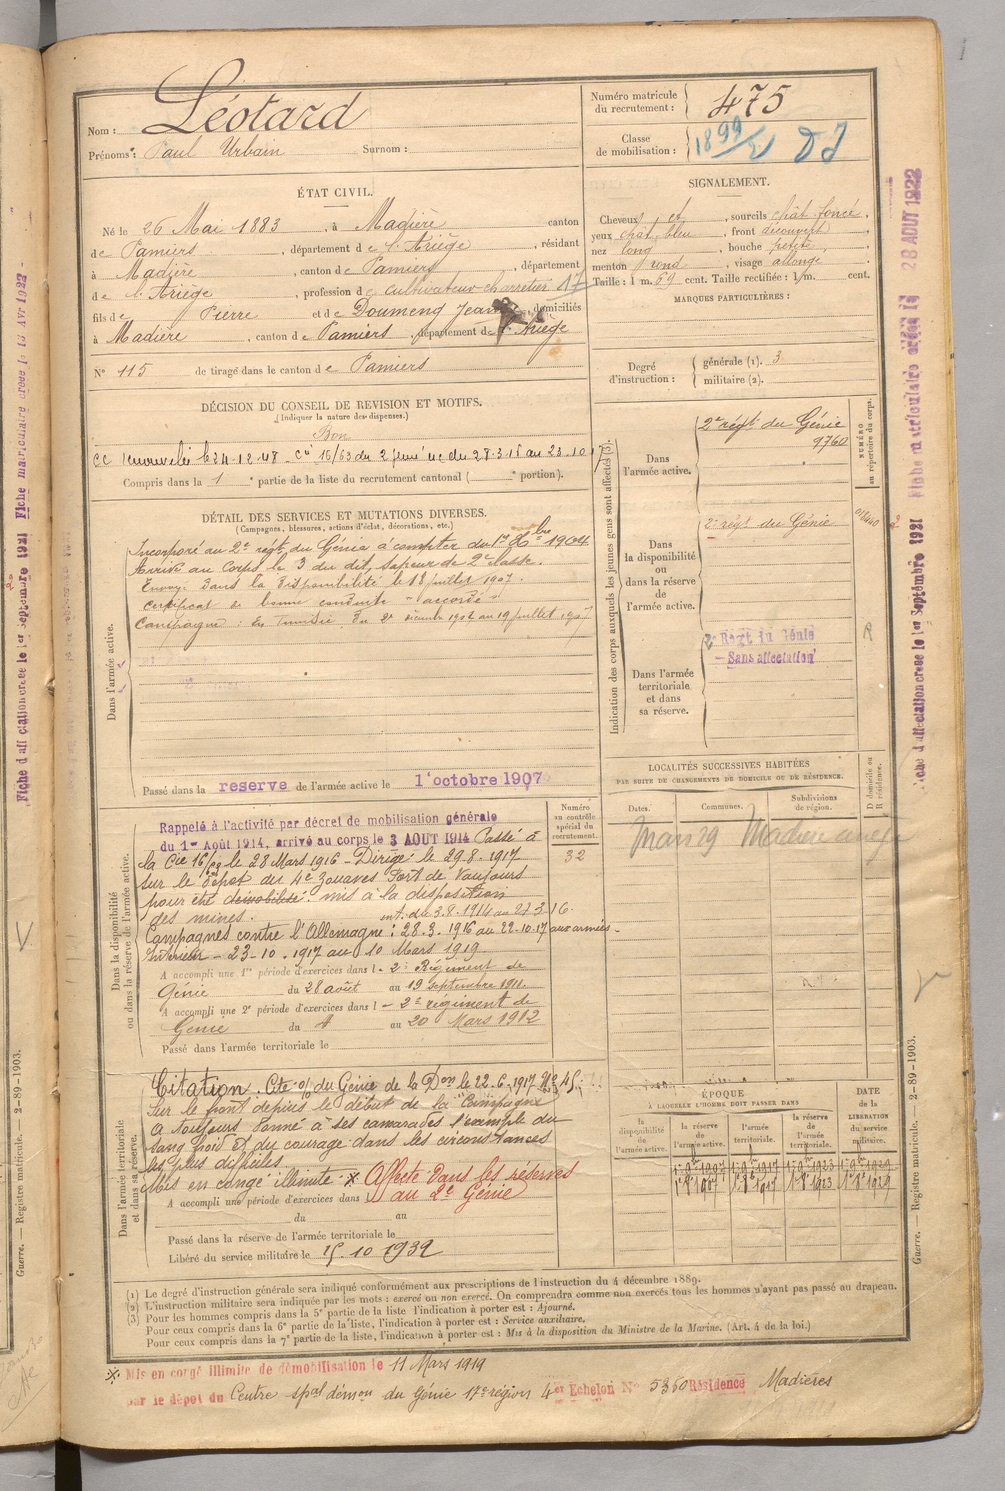 Nom : Léotard
Prénoms : Paul Urbain Surnom :
Numéro matricule du recrutement : 475
Classe de mobilisation : 1899
ÉTAT CIVIL.
Né le 26 Mai 1883, à Madière canton
de Pamiers, département de l'Ariège, résidant
à Madière, canton de Pamiers, département
de l'Ariège, profession de cultivateur charretier 17
fils de Pierre et de Doumenq Jeanne domiciliés
à Madière, canton de Pamiers, département de l'Ariège
N° 115 de tirage dans le canton de Pamiers
SIGNALEMENT.
Cheveux et, sourcils chât. foncé,
yeux chât. bleu, front découvert
nez long, bouche petite,
menton rond, visage allongé
Taille : 1 m. 69 cent. Taille rectifiée : 1 m. cent.
MARQUES PARTICULIÈRES :
Degré d'instruction : générale (1). 3
militaire (2).
DÉCISION DU CONSEIL DE REVISION ET MOTIFS.
(Indiquer la nature des dispenses.)
Bon
Compris dans la 1 partie de la liste du recrutement cantonal ( portion).
DÉTAIL DES SERVICES ET MUTATIONS DIVERSES.
(Campagnes, blessures, actions d'éclat, décorations, etc.)
Dans l'armée active.
Incorporé au 2e régt du Génie à compter du 1er 8bre 1904
Arrivé au corps le 3 du dit, sapeur de 2e classe.
Envoyé dans la disponibilité le 18 juillet 1907.
Certificat de bonne conduite "accordé"
Campagne : En Tunisie du 2 décembre 1904 au 19 juillet 1907
Passé dans la reserve de l'armée active le 1 octobre 1907
Indication des corps auxquels les jeunes gens sont affectés (3).
NUMÉRO au répertoire du corps.
Dans l'armée active.
2e régt du Génie
9760
Dans la disponibilité ou dans la réserve de l'armée active.
2e régt du Génie
Dans l'armée territoriale et dans sa réserve.
2e Régt du Génie
Sans affectation
LOCALITÉS SUCCESSIVES HABITÉES
PAR SUITE DE CHANGEMENTS DE DOMICILE OU DE RÉSIDENCE.
Dates. Communes. Subdivisions de région. D domicile ou R résidence.
Mars 19 Madière
Dans la disponibilité ou dans la réserve de l'armée active.
Numéro au contrôle spécial du recrutement.
32
Rappelé à l'activité par décret de mobilisation générale
du 1er Août 1914, arrivé au corps le 3 AOUT 1914 Passé à
la Cie 16/63 le 28 Mars 1916 - Dirigé le 29.8.1917
sur le dépôt du 4e Zouaves Fort de Vaujours
pour être démobilisé. mis à la disposition
des mines. int. du 3.8.1914 au 27.3.16.
Campagnes contre l'Allemagne : 28.3.1916 au 22.10.17 aux armées -
Intérieur - 23.10.1917 au 10 Mars 1919
A accompli une 1re période d'exercices dans l- 2e Régiment de
Génie du 28 août au 19 septembre 1911.
A accompli une 2e période d'exercices dans l- 2e régiment de
Génie du 4 au 20 Mars 1912
Passé dans l'armée territoriale le
Dans l'armée territoriale et dans sa réserve.
Citation. Cte du Génie de la Don le 22.6.1917 No 45
Sur le front depuis le début de la Campagne
a toujours donné à ses camarades l'exemple du
sang froid et du courage dans les circonstances
les plus difficiles
Mis en congé illimité x Affecté dans les réserves
au 2e Génie
A accompli une période d'exercices dans
du au
Passé dans la réserve de l'armée territoriale le
Libéré du service militaire le 15.10 1932
ÉPOQUE
À LAQUELLE L'HOMME DOIT PASSER DANS
la disponibilité de l'armée active. la réserve de l'armée active. l'armée territoriale. la réserve de l'armée territoriale. DATE de la LIBÉRATION du service militaire.
(1) Le degré d'instruction générale sera indiqué conformément aux prescriptions de l'instruction du 4 décembre 1889.
(2) L'instruction militaire sera indiquée par les mots : exercé ou non exercé. On comprendra comme non exercés tous les hommes n'ayant pas passé au drapeau.
(3) Pour les hommes compris dans la 5e partie de la liste l'indication à porter est : Ajourné.
Pour ceux compris dans la 6e partie de la liste, l'indication à porter est : Service auxiliaire.
Pour ceux compris dans la 7e partie de la liste, l'indication à porter est : Mis à la disposition du Ministre de la Marine. (Art. 4 de la loi.)
Mis en congé illimité de démobilisation le 11 Mars 1919
par le dépôt du Centre spal démon du Génie 17e région 4e Echelon No 5360 Résidence Madières
Guerre. — Registre matricule. — 2-89-1903.
Guerre. — Registre matricule. 2-89-1903.
28 AOUT 1922